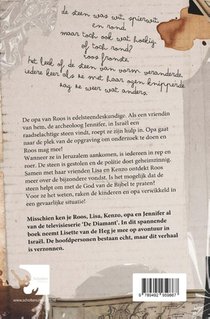 de steen was wit spierwit
en rond
maar toch ook wat hoekig
of toch rond?
roos fronste
het leek of de steen van vorm veranderde
iedere keer als ze met haar ogen knipperde
zag ze weer wat anders
De opa van Roos is edelsteendeskundige. Als een vriendin
van hem, de archeoloog Jennifer, in Israël een
raadselachtige steen vindt, roept ze zijn hulp in. Opa gaat
naar de plek van de opgraving om onderzoek te doen en
Roos mag mee!
Wanneer ze in Jeruzalem aankomen, is iedereen in rep en
roer. De steen is gestolen en de politie doet geheimzinnig.
Samen met haar vrienden Lisa en Kenzo ontdekt Roos
meer over de bijzondere vondst. Is het mogelijk dat de
steen helpt om met de God van de Bijbel te praten?
Voor ze het weten, raken de kinderen en opa verwikkeld in
een gevaarlijke situatie!
Misschien ken je Roos, Lisa, Kenzo, opa en Jennifer al
van de televisieserie 'De Diamant'. In dit spannende
boek neemt Lisette van de Heg je mee op avontuur in
Israël. De hoofdpersonen bestaan echt, maar dit verhaal
is verzonnen.